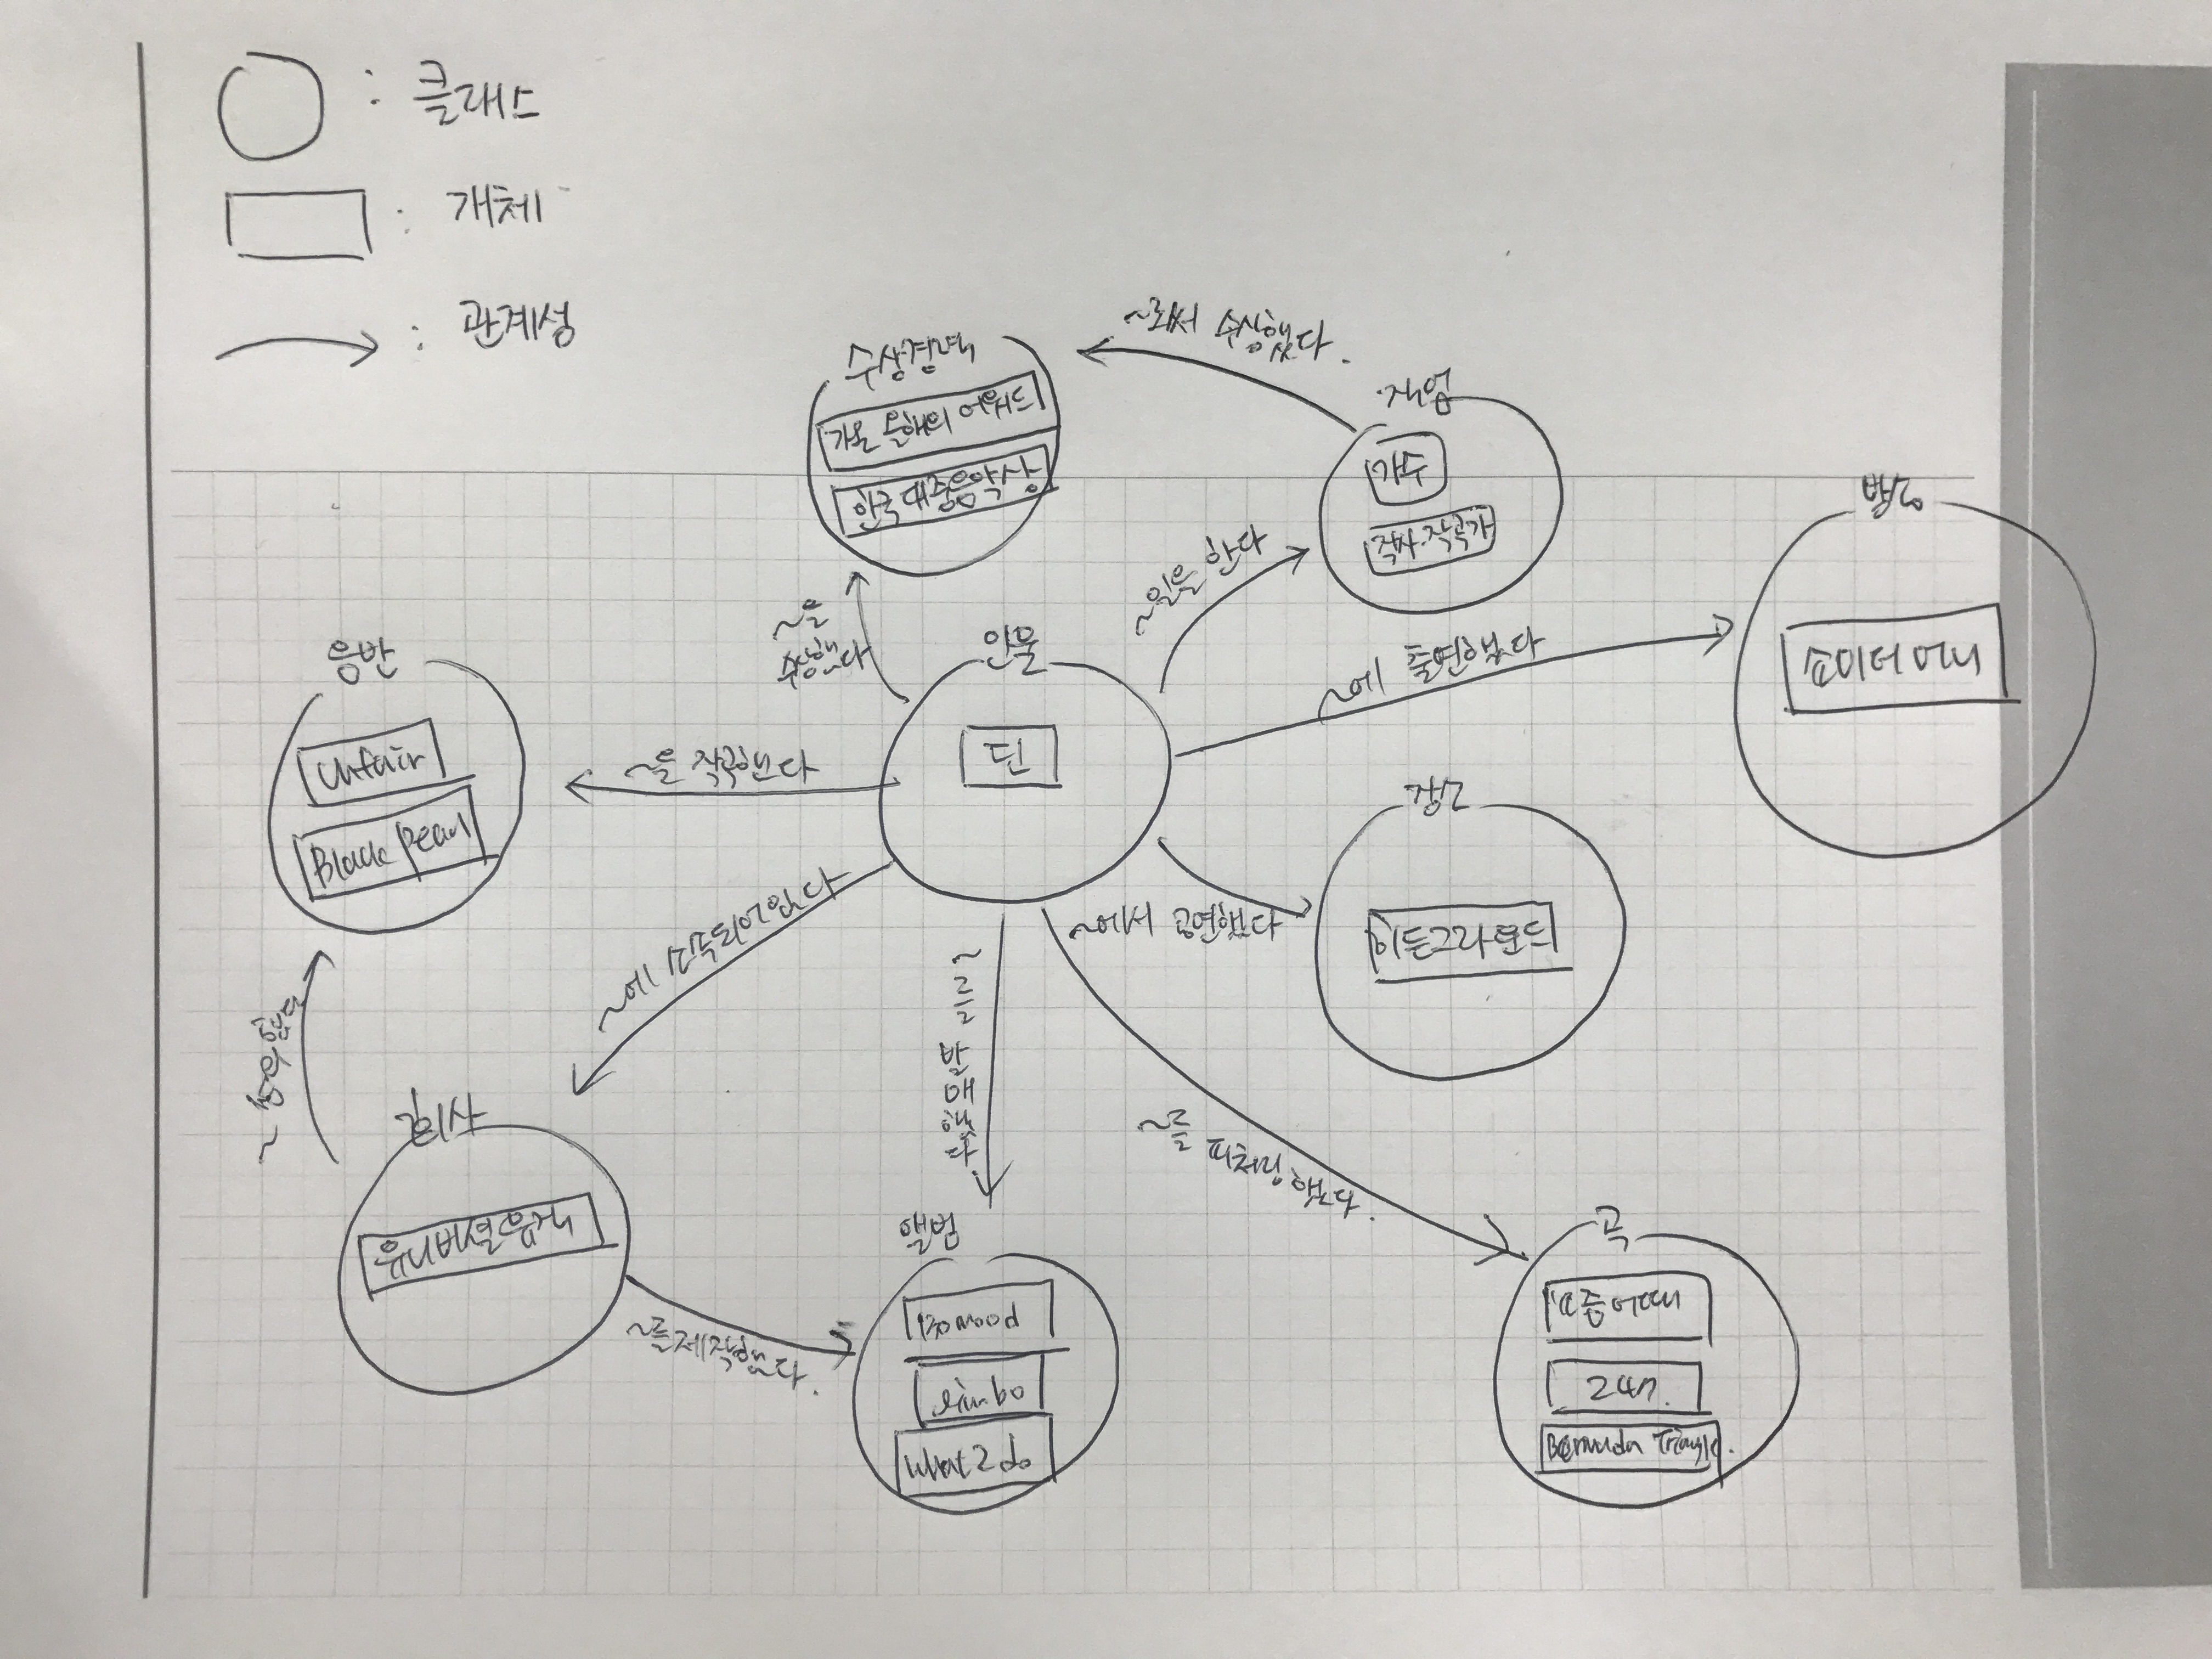 : 클래스
: 개체
: 관계성
~로써 수상했다.
수상경력
가온 올해의 어워드
한국대중음악상
직업
가수
작사·작곡가
방송
쇼미더머니
~을
수상했다
~일을 한다
인물
딘
~에 출연했다
음반
Unfair
Black Pearl
~을 작곡했다
장소
히든그라운드
~에서 공연했다
~에 소속되어있다
~를 발매했다
~를 피처링했다.
회사
유니버설뮤직
~를제작했다.
앨범
130 mood
limbo
What 2 do
곡
요즘어때
247.
Bermuda Triangle.